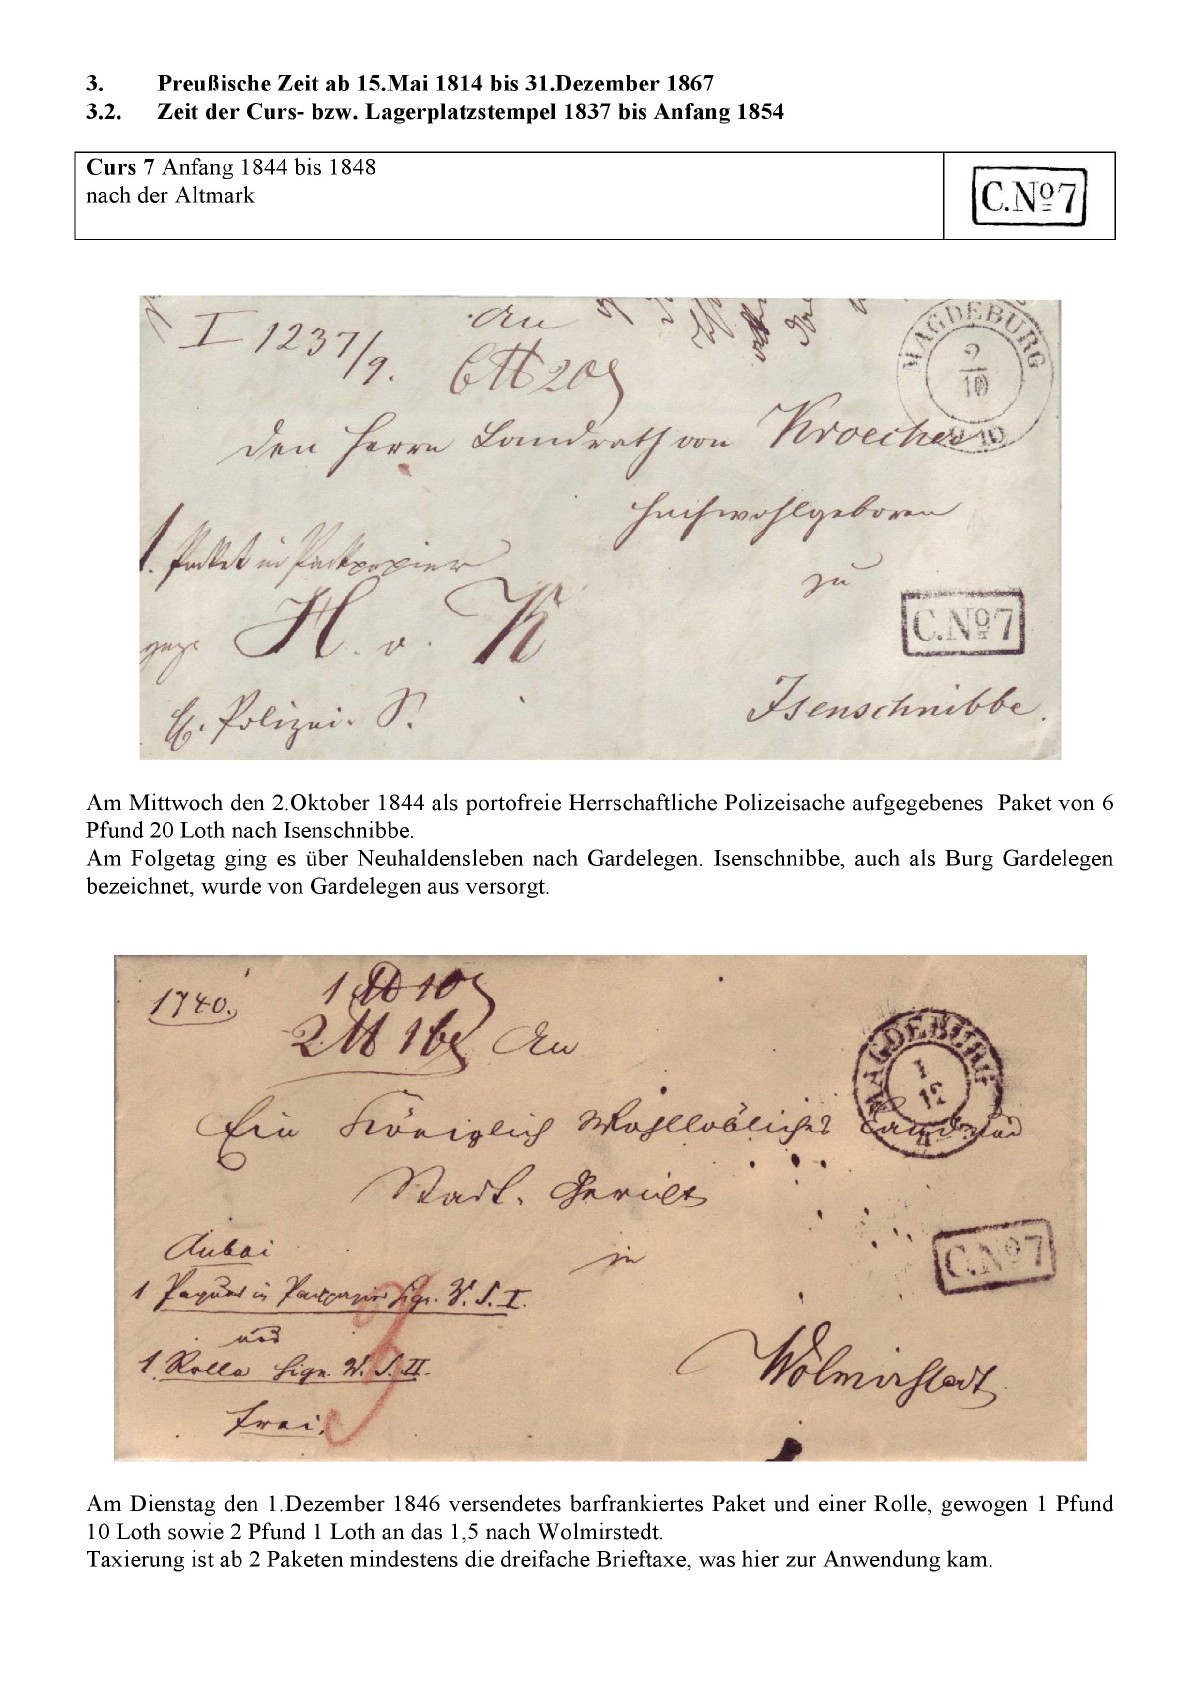 3. Preußische Zeit ab 15.Mai 1814 bis 31.Dezember 1867
3.2. Zeit der Curs- bzw. Lagerplatzstempel 1837 bis Anfang 1854
Curs 7 Anfang 1844 bis 1848
nach der Altmark
C.No7
I 1237/9.
An
6 ℔ 20
MAGDEBURG
2
10
den Herrn Landrath von Kroecher
Hochwohlgeboren
1. Packet in Packpapier
zu
H. v. K
C.No7
Polizei. S.
Isenschnibbe.
Am Mittwoch den 2.Oktober 1844 als portofreie Herrschaftliche Polizeisache aufgegebenes Paket von 6
Pfund 20 Loth nach Isenschnibbe.
Am Folgetag ging es über Neuhaldensleben nach Gardelegen. Isenschnibbe, auch als Burg Gardelegen
bezeichnet, wurde von Gardelegen aus versorgt.
1740.
1 ℔ 10
2 ℔ 1
An
MAGDEBURG
1
12
Ein Königlich Wohllöbliches Land und
Stadt. Gericht
Anbei
in
1 Paquet in Packpapier Sign. W. S. I.
und
1. Rolle Sign. W. S. II.
frei.
3
C.No7
Wolmirstedt
Am Dienstag den 1.Dezember 1846 versendetes barfrankiertes Paket und einer Rolle, gewogen 1 Pfund
10 Loth sowie 2 Pfund 1 Loth an das 1,5 nach Wolmirstedt.
Taxierung ist ab 2 Paketen mindestens die dreifache Brieftaxe, was hier zur Anwendung kam.